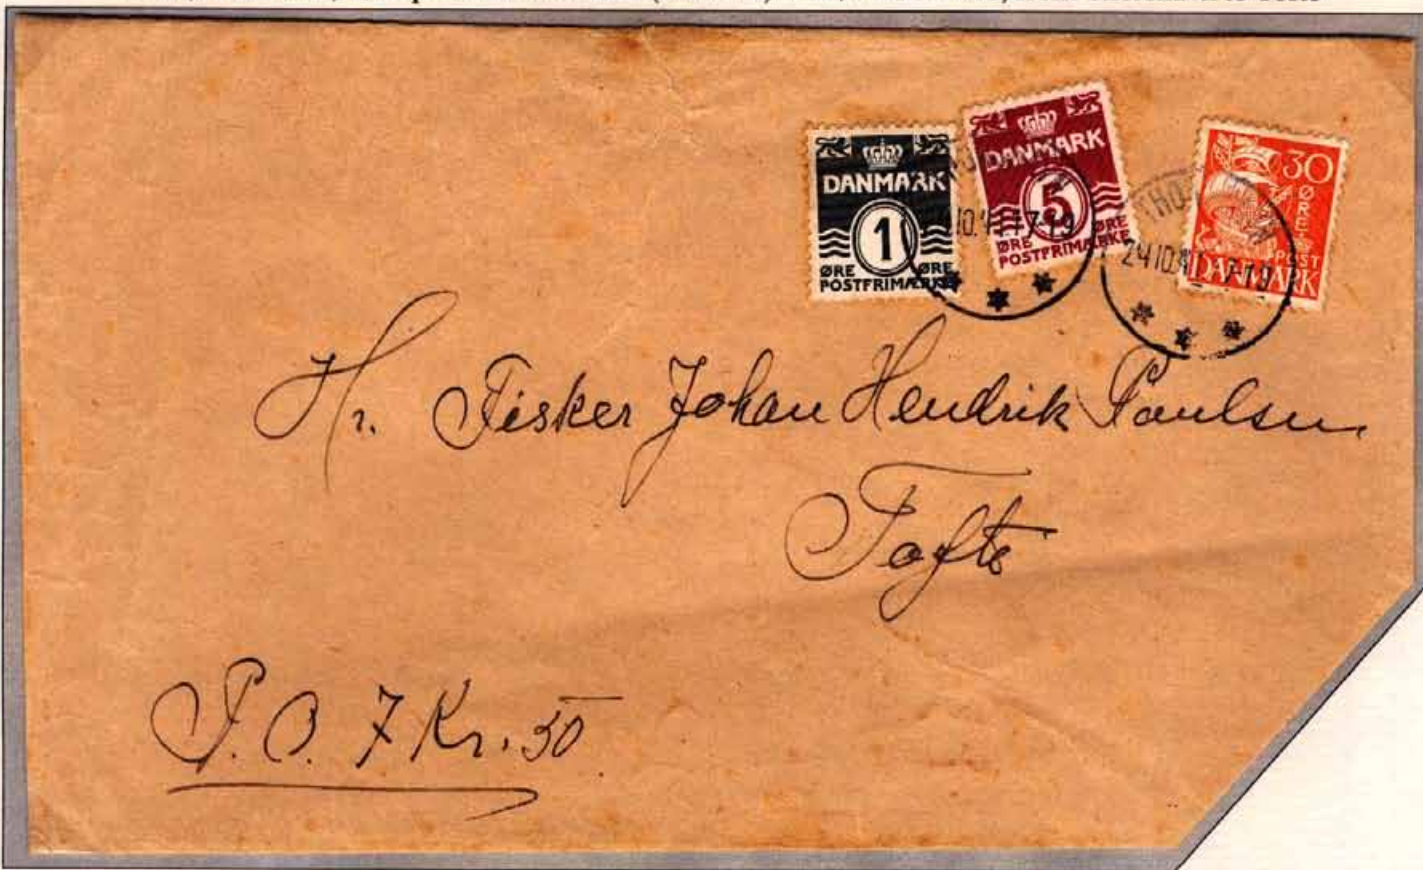 DANMARK
1
ØRE ØRE
POSTFRIMÆRKE
DANMARK
5
ØRE ØRE
POSTFRIMÆRKE
30
ØRE
POST
DANMARK
17-19
24.10.4
7-19
Hr. Fisker Johan Hendrik Poulsen
Tofte
P.O. 7 Kr. 50